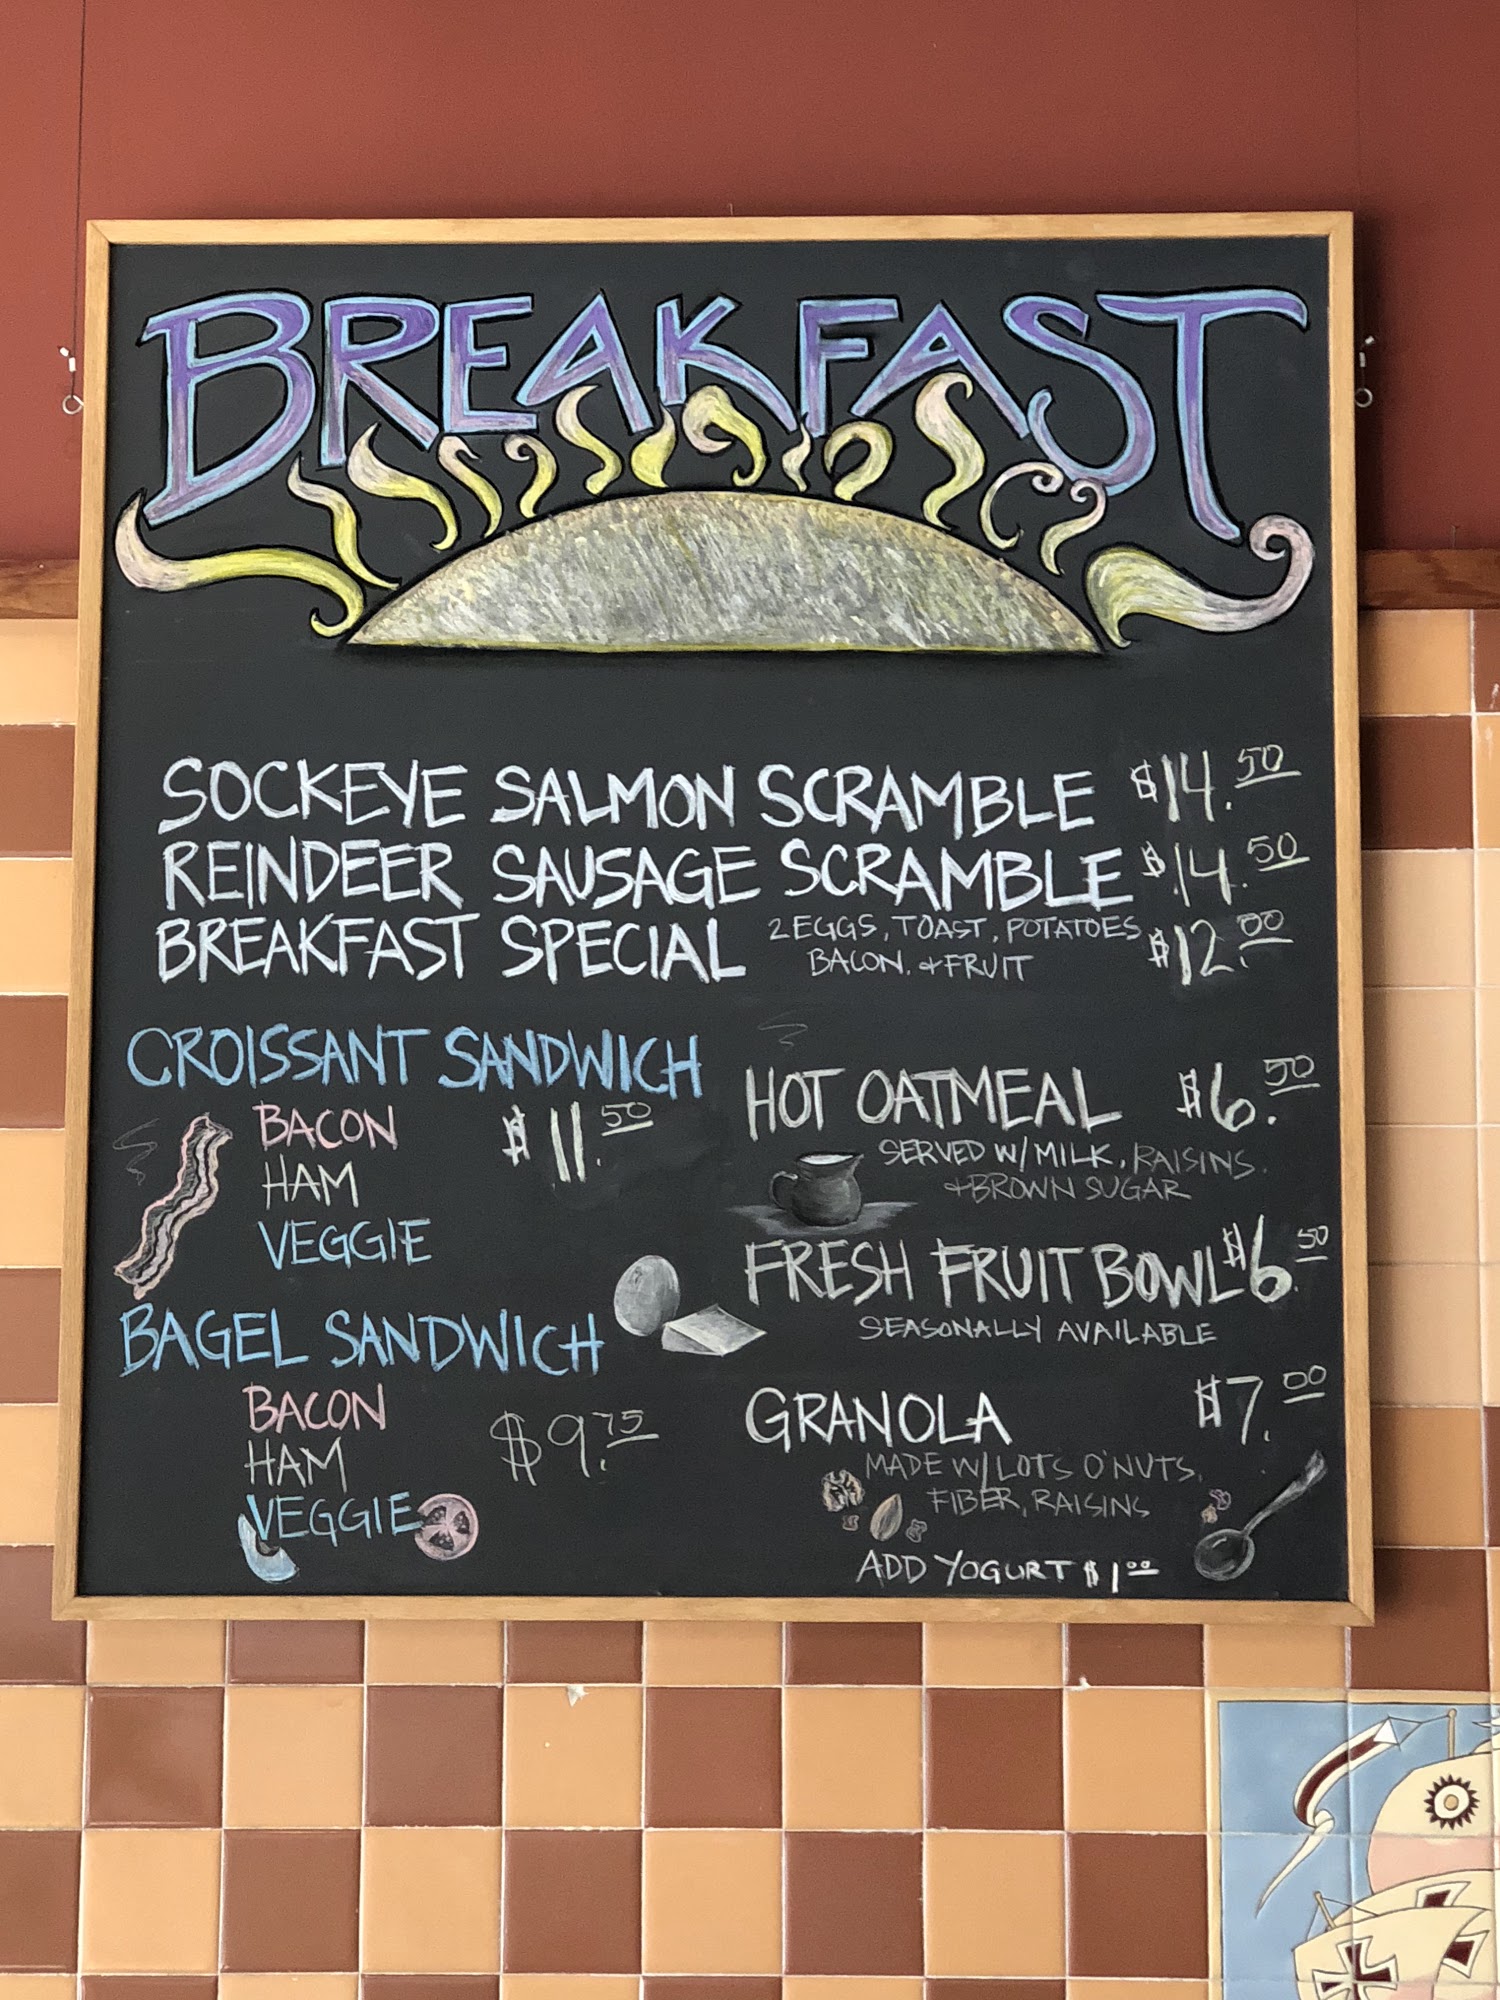 BREAKFAST
SOCKEYE SALMON SCRAMBLE $14.50
REINDEER SAUSAGE SCRAMBLE $14.50
BREAKFAST SPECIAL 2 EGGS, TOAST, POTATOES, BACON, & FRUIT $12.00
CROISSANT SANDWICH
BACON $11.50
HAM
VEGGIE
BAGEL SANDWICH
BACON
HAM $9.75
VEGGIE
HOT OATMEAL $6.50
SERVED W/ MILK, RAISINS.
& BROWN SUGAR
FRESH FRUIT BOWL $6.50
SEASONALLY AVAILABLE
GRANOLA $7.00
MADE W/ LOTS O'NUTS,
FIBER, RAISINS
ADD YOGURT $1.00